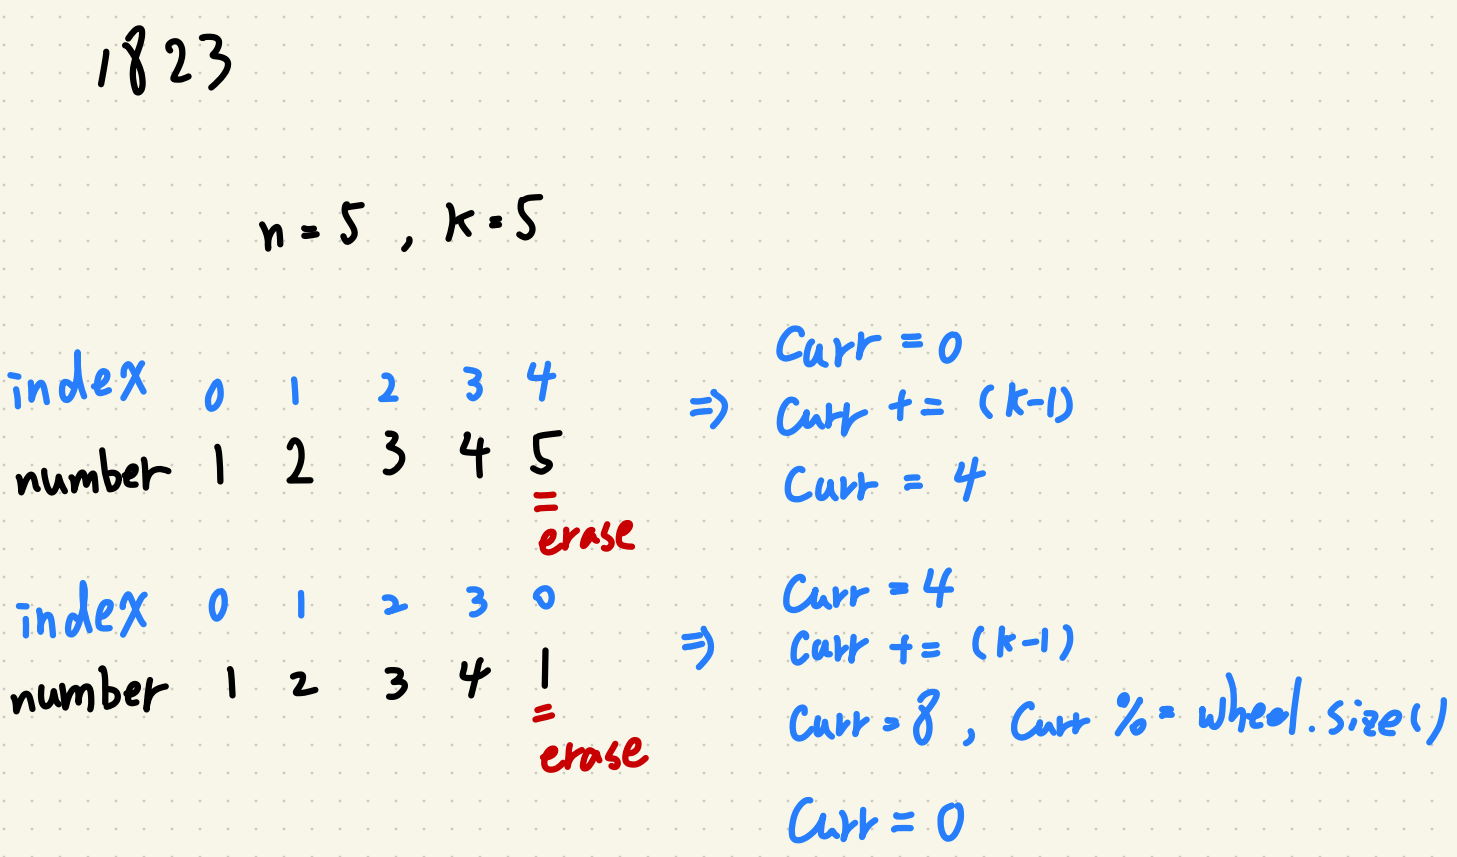 1823
n = 5 , k = 5
index 0 1 2 3 4
number 1 2 3 4 5
erase
⇒ Curr = 0
Curr += (k-1)
Curr = 4
index 0 1 2 3 0
number 1 2 3 4 1
erase
⇒ Curr = 4
Curr += (k-1)
Curr = 8 , Curr %= wheel.size()
Curr = 0